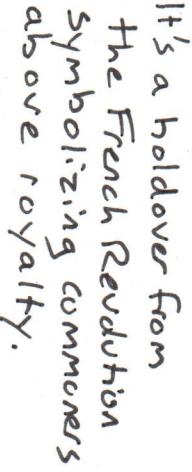 It's a holdover from
the French Revolution
symbolizing commoners
above royalty.